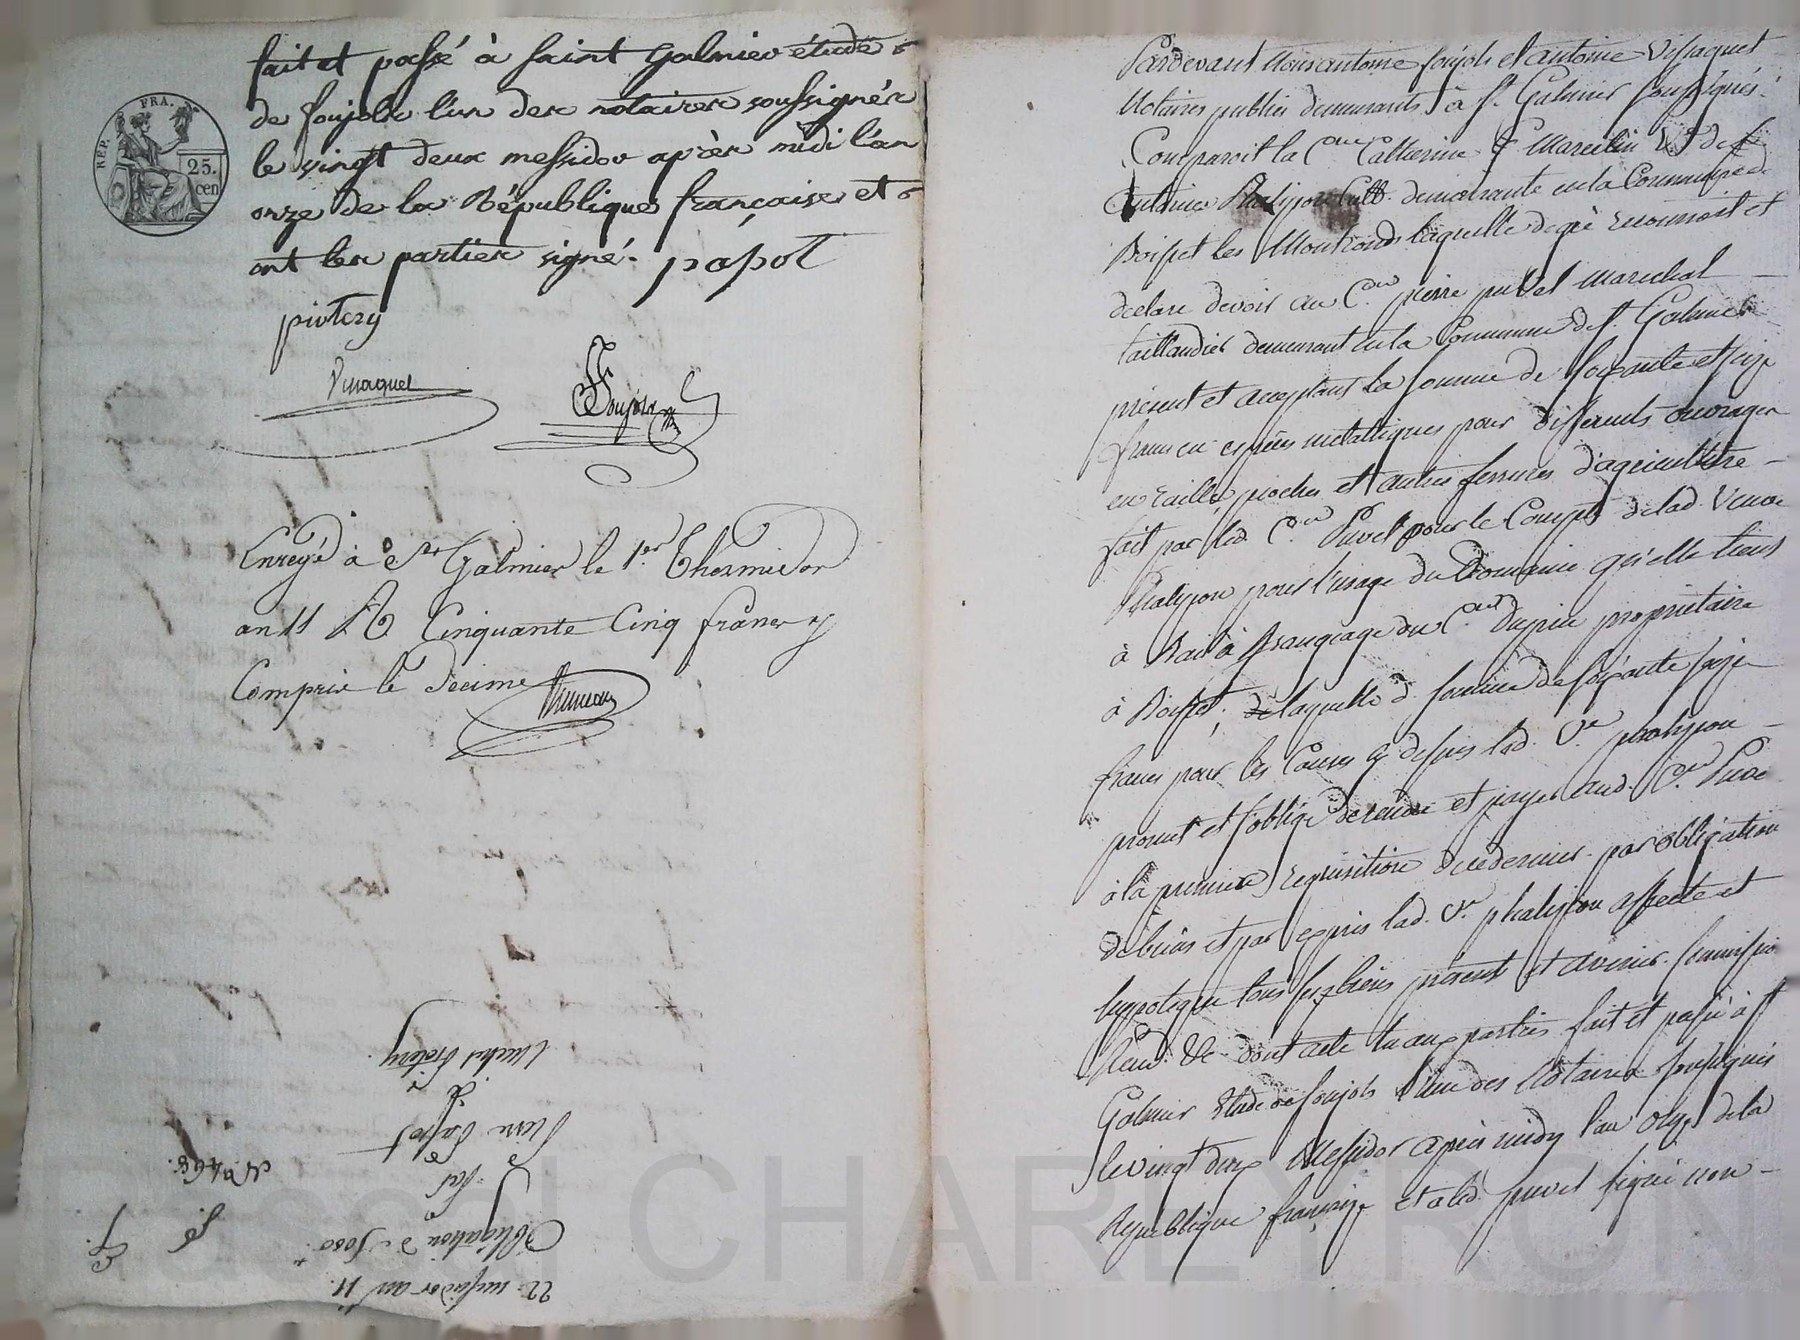 fait et passé à saint Galmier étude
de foujols l'un des notaires soussignés
le vingt deux messidor après midi l'an
onze de la République française et
ont les parties signé. papot
REP. FRA.
25.
cen
Foujols
Enregé à St Galmier le 1er Thermidor
an 11 Cinquante Cinq francs
Compris le Decime
22 messidor an 11.
Obligation de
par
Pierre Papot
à
N° 468.
Pardevant Nous antoine foujols et antoine Vissaguet
Notaires publics demeurants à St Galmier soussignés.
Comparoit la Cne Catherine Marcelin Ve de
antoine Phalipon Cult. demeurante en la Commune de
Boisset les Montrond laquelle de gré reconnoit et
déclare devoir au Cen pierre puvel marechal
taillandier demeurant en la Commune de St Galmier
présent et acceptant la somme de soixante et seize
francs en espèces métalliques pour différents ouvrages
en railles, pioches et autres ferrures d'agriculture
fait par led. Cen Puvel pour le Compte de lad. Veuve
Phalipon pour l'usage du Domaine qu'elle tient
à Bail à Grangeage du Cen Dupin propriétaire
à Boisset, de laquelle d. somme de soixante seize
francs pour les Causes q dessus lad. Ve phalipon
promet et s'oblige de rendre et payer aud. Cen Puvel
à la premiere requisition de ce dernier. par obligation
de biens et par exprès lad. Ve. phalipon affecte et
hypoteque tous ses biens présent et avenir. soumission
Rend. &c. dont acte lu aux parties fait et passé à St
Galmier Etude de foujols l'un des Notaires soussignés
le vingt deux Messidor après midy l'an onze de la
République françaize et a led. puvel signé non